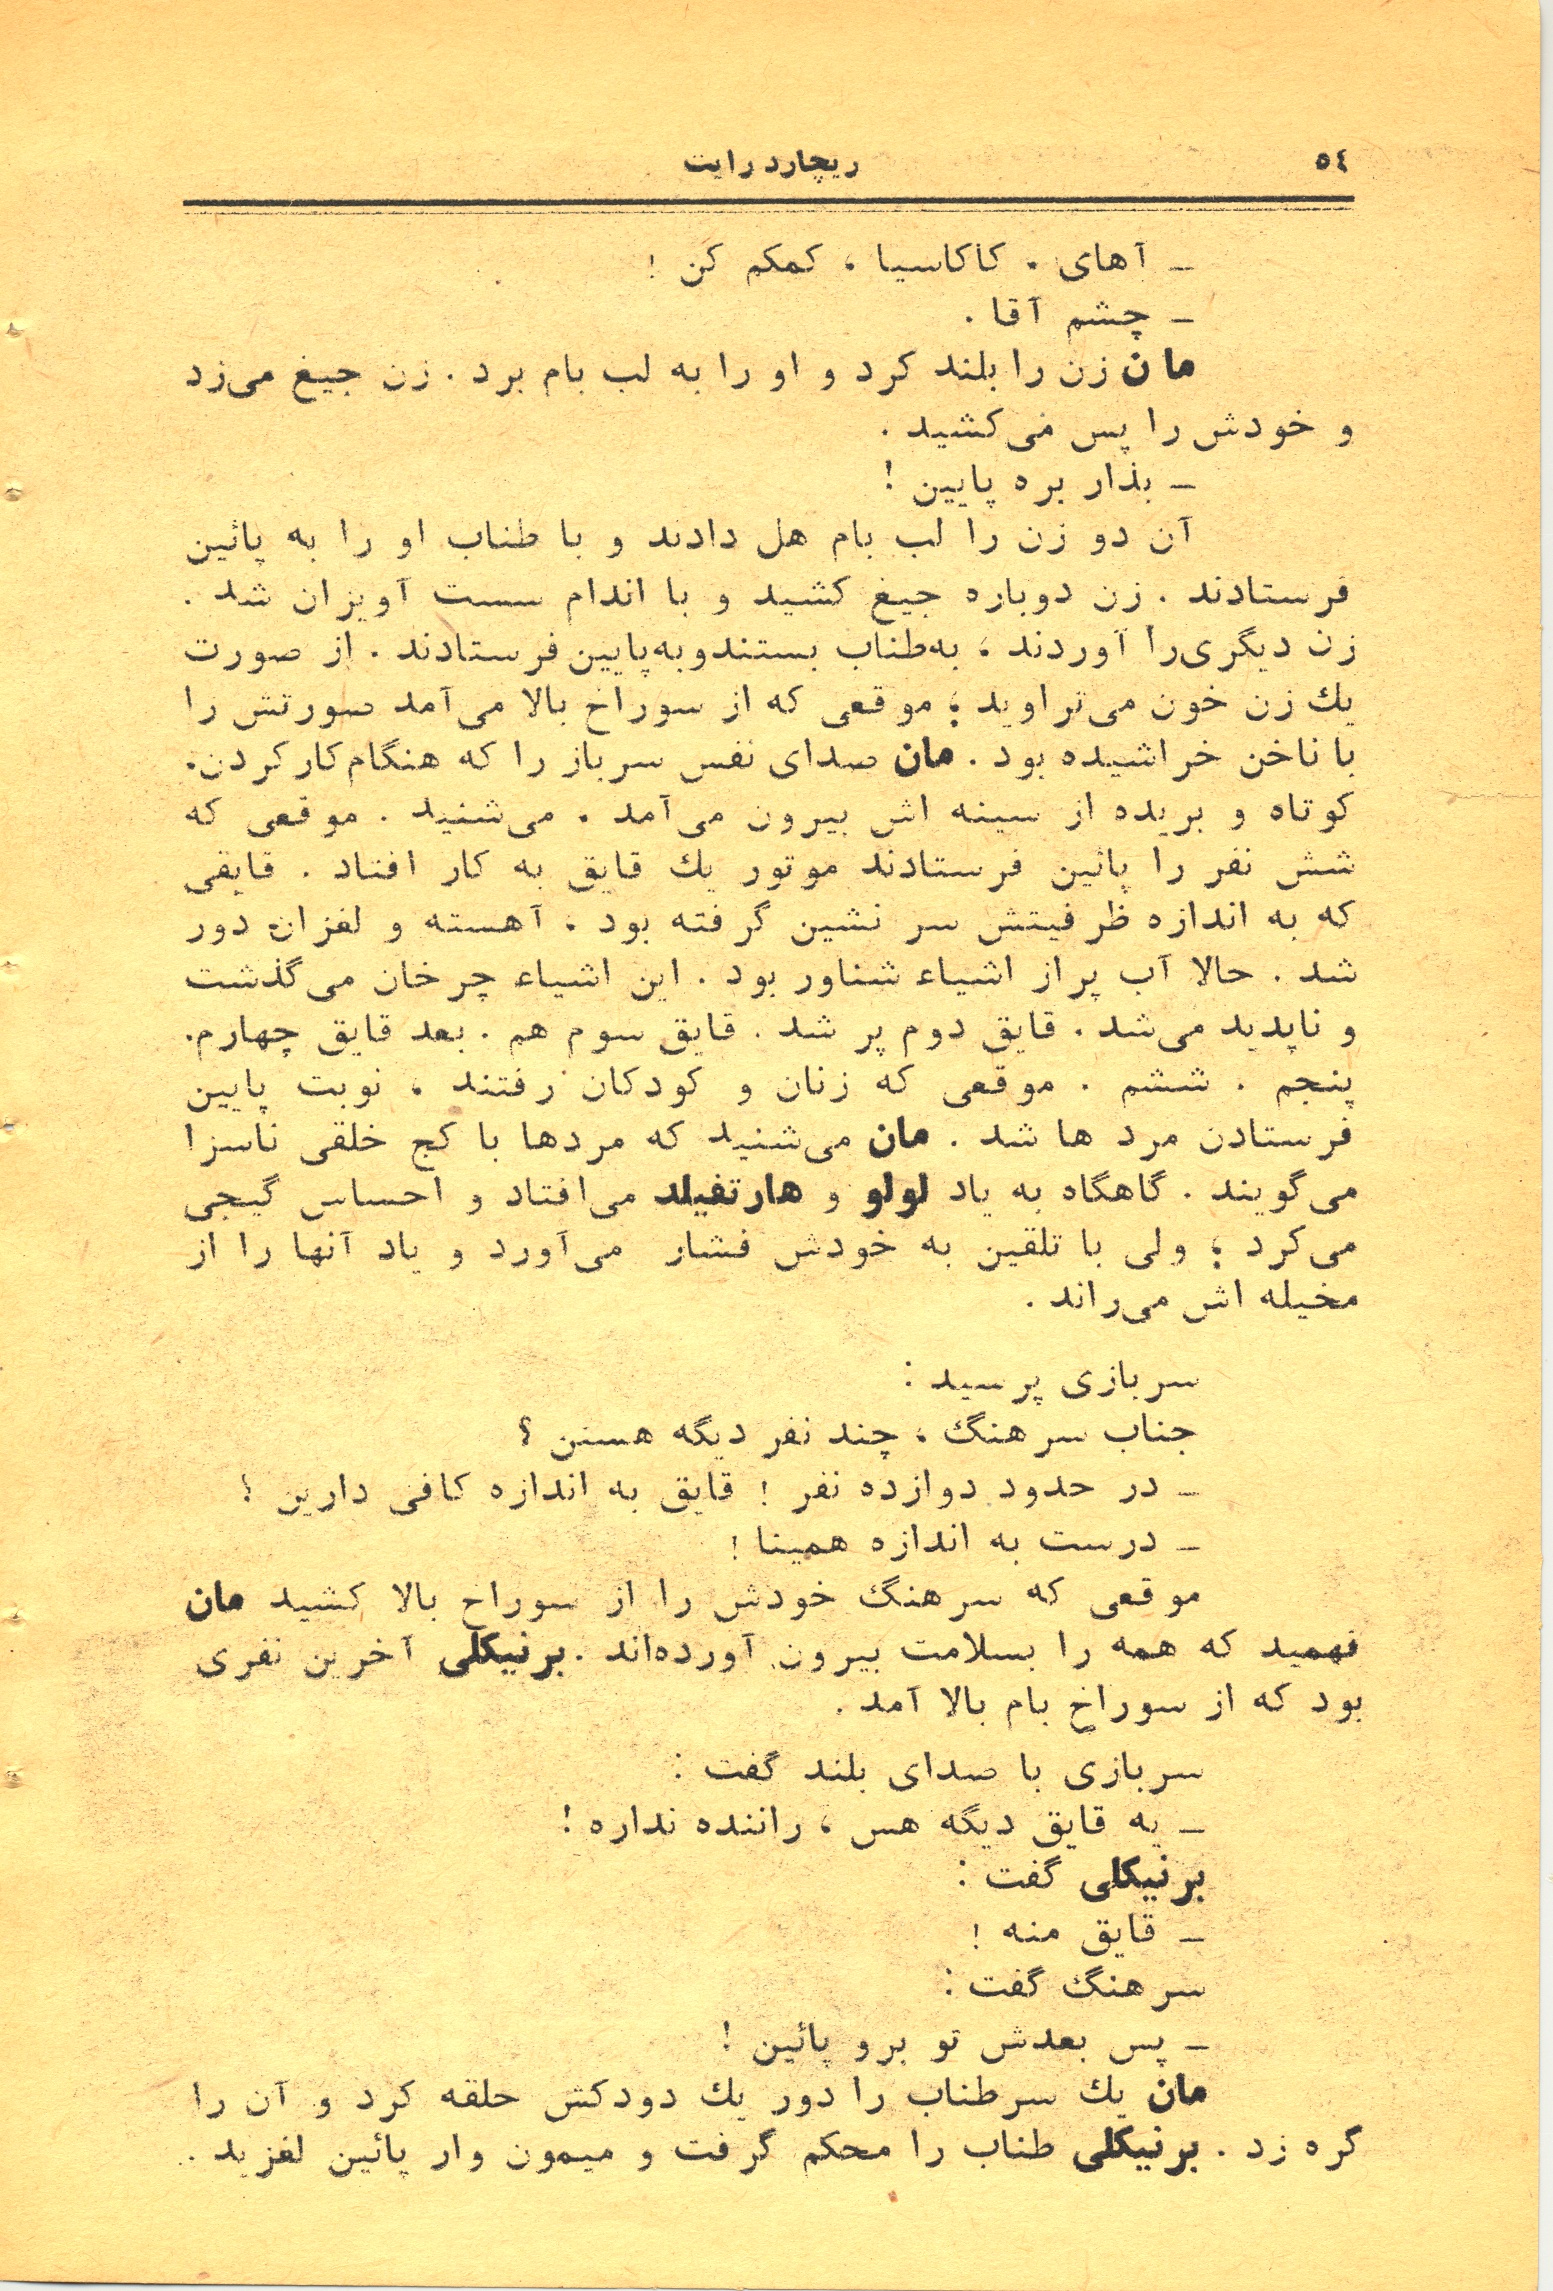 ٥٤
ریچارد رایت
ـ آهای ، کاکاسیا ، کمکم کن !
ـ چشم آقا .
مان زن را بلند کرد و او را به لب بام برد . زن جیغ می‌زد
و خودش را پس می‌کشید .
ـ بذار بره پایین !
آن دو زن را لب بام هل دادند و با طناب او را به پائین
فرستادند . زن دوباره جیغ کشید و با اندام سست آویزان شد .
زن دیگری‌را آوردند ، به‌طناب بستندوبه‌پایین‌فرستادند . از صورت
یك زن خون می‌تراوید ؛ موقعی که از سوراخ بالا می‌آمد صورتش را
با ناخن خراشیده بود . مان صدای نفس سرباز را که هنگام‌کارکردن،
کوتاه و بریده از سینه اش بیرون می‌آمد ، می‌شنید . موقعی که
شش نفر را پائین فرستادند موتور یك قایق به کار افتاد . قایقی
که به اندازه ظرفیتش سر نشین گرفته بود ، آهسته و لغزان دور
شد . حالا آب پر از اشیاء شناور بود . این اشیاء چرخان می‌گذشت
و ناپدید می‌شد . قایق دوم پر شد . قایق سوم هم . بعد قایق چهارم.
پنجم . ششم . موقعی که زنان و کودکان رفتند ، نوبت پایین
فرستادن مرد ها شد . مان می‌شنید که مردها با کج خلقی ناسزا
می‌گویند . گاهگاه به یاد لولو و هارتفیلد می‌افتاد و احساس گیجی
می‌کرد ؛ ولی با تلقین به خودش فشار می‌آورد و یاد آنها را از
مخیله اش می‌راند .
سربازی پرسید :
جناب سرهنگ ، چند نفر دیگه هستن ؟
ـ در حدود دوازده نفر ! قایق به اندازه کافی دارین ؟
ـ درست به اندازه همینا !
موقعی که سرهنگ خودش را از سوراخ بالا کشید مان
فهمید که همه را بسلامت بیرون آورده‌اند . برنیکلی آخرین نفری
بود که از سوراخ بام بالا آمد .
سربازی با صدای بلند گفت :
ـ یه قایق دیگه هس ، راننده نداره !
برنیکلی گفت :
ـ قایق منه !
سرهنگ گفت :
ـ پس بعدش تو برو پائین !
مان یك سرطناب را دور یك دودکش حلقه کرد و آن را
گره زد . برنیکلی طناب را محکم گرفت و میمون وار پائین لغزید .